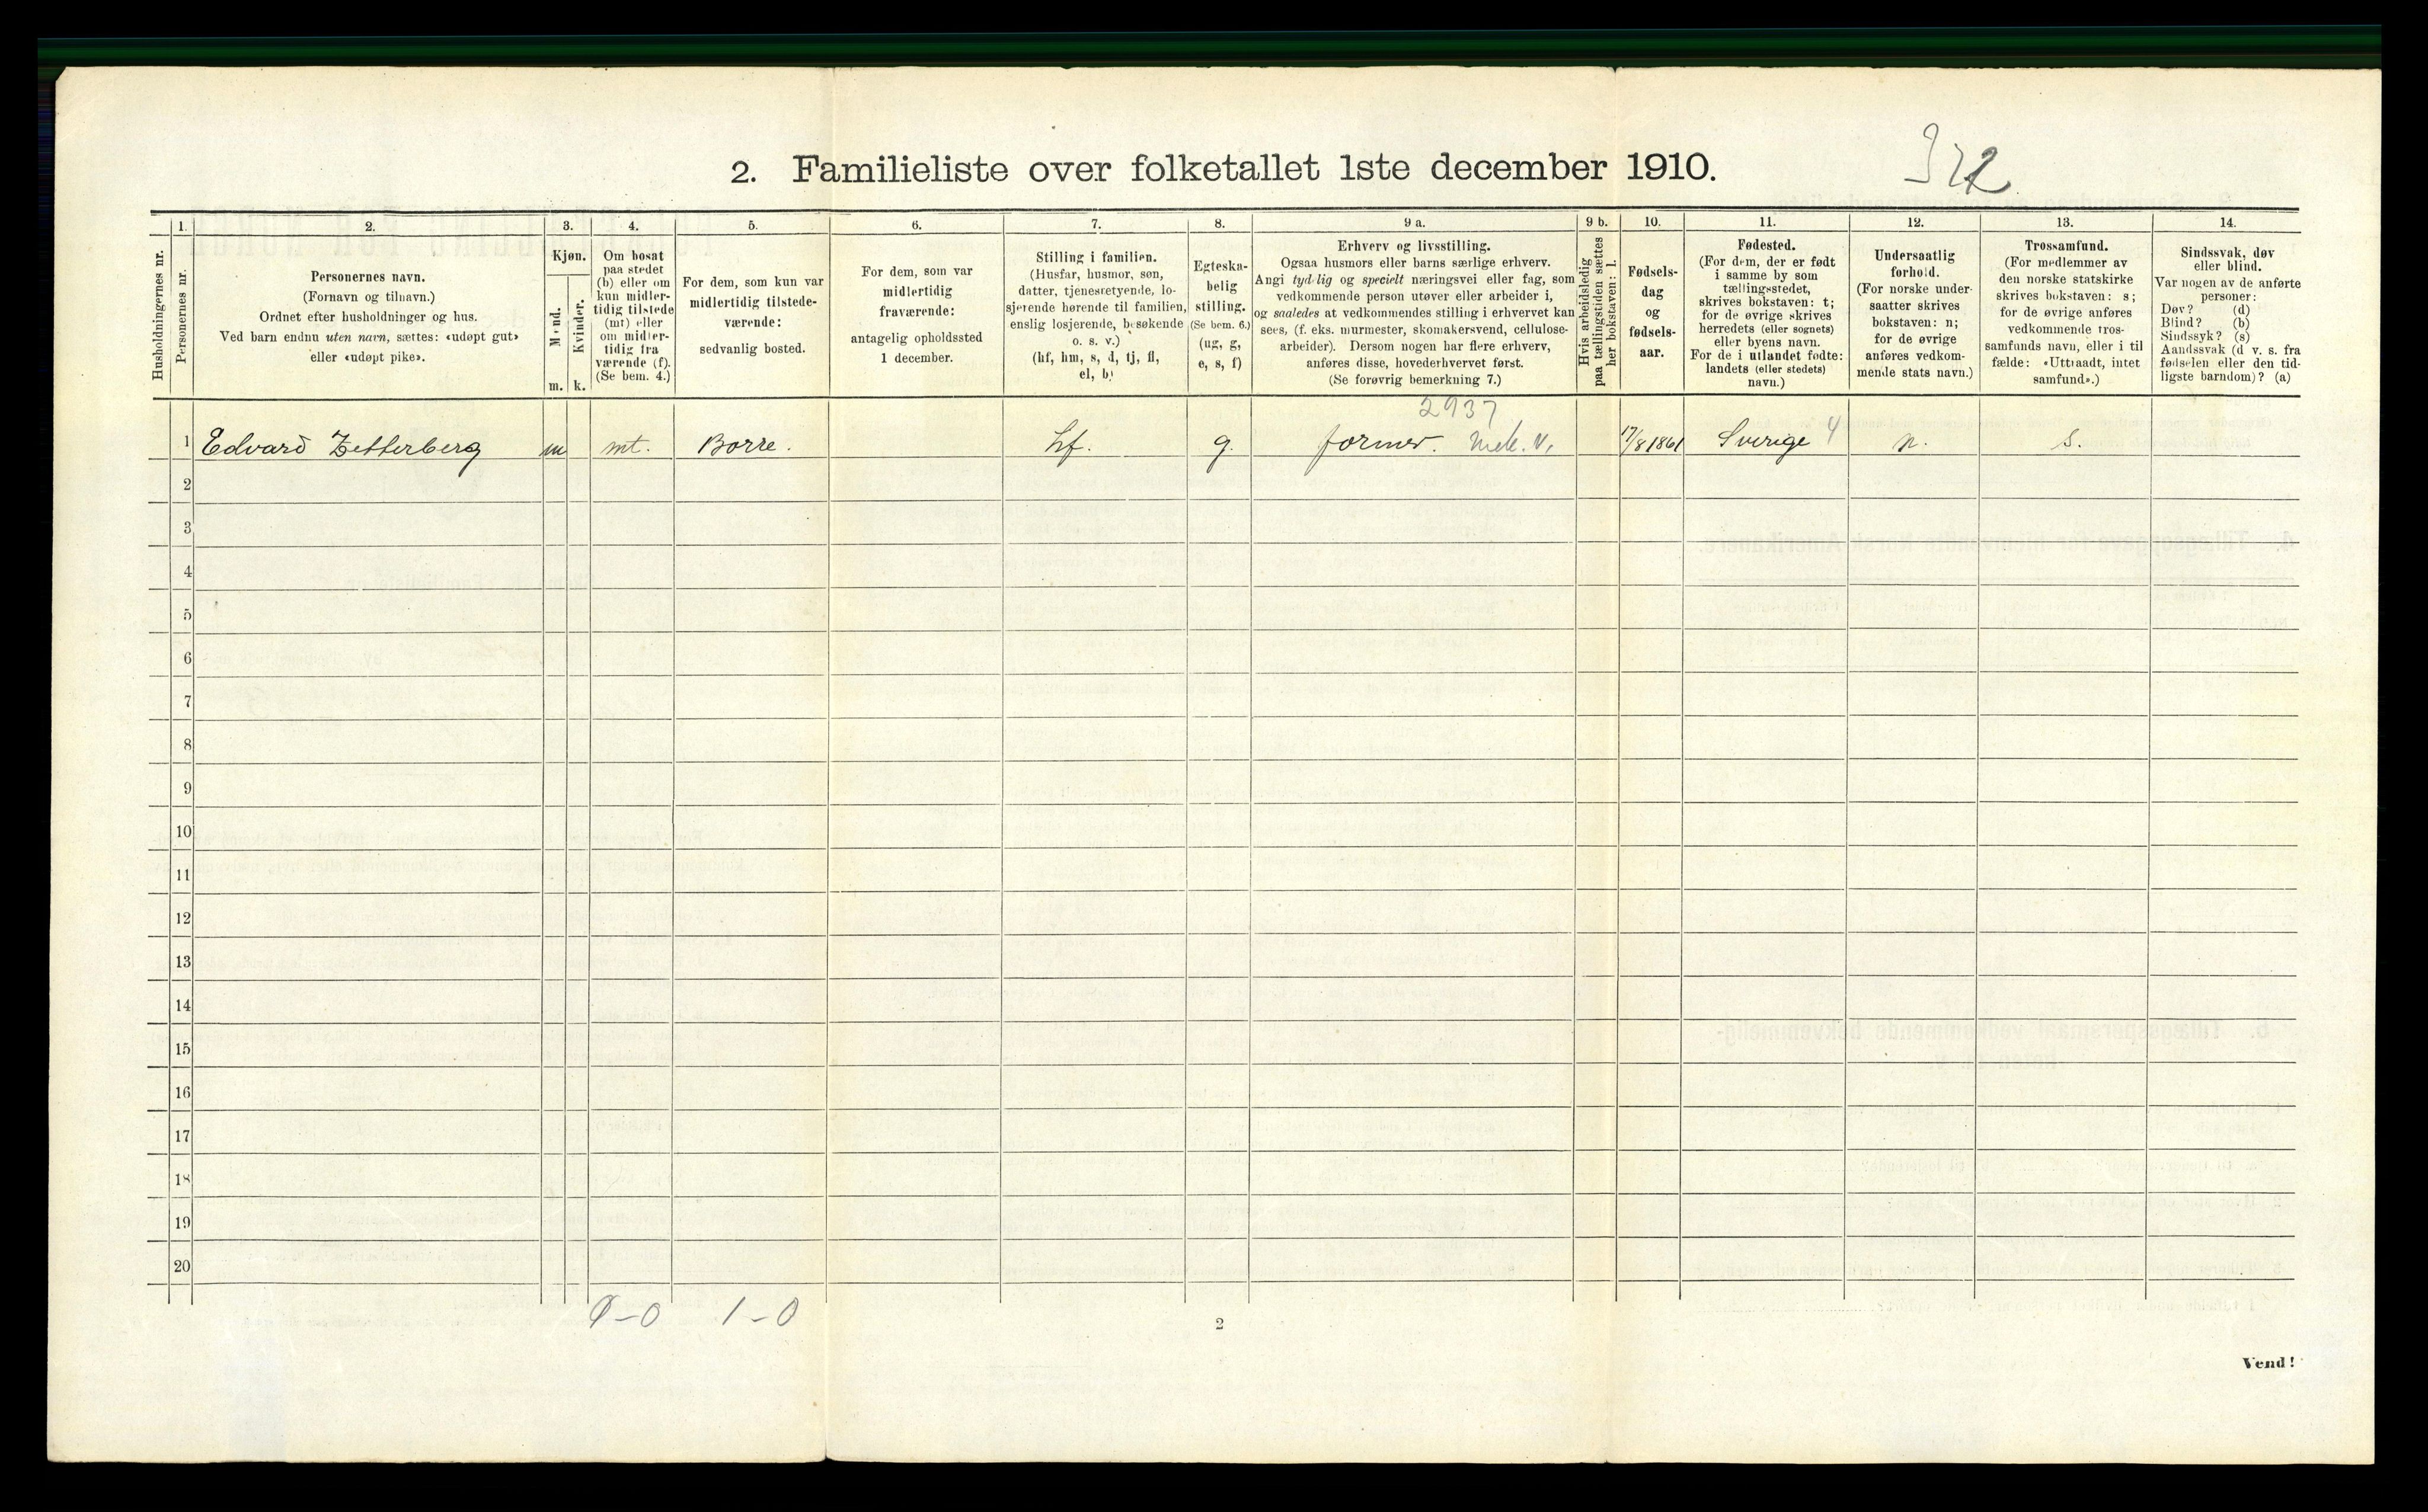 2. Familieliste over folketallet 1ste december 1910.
372
Husholdningernes nr.
1.
Personernes nr.
2.
Personernes navn.
(Fornavn og tilnavn.)
Ordnet efter husholdninger og hus.
Ved barn endnu uten navn, sættes: «udøpt gut»
eller «udøpt pike».
3.
Kjøn.
Mænd.
Kvinder.
m. k.
4.
Om bosat
paa stedet
(b) eller om
kun midler-
tidig tilstede
(mt) eller
om midler-
tidig fra
værende (f).
(Se bem. 4.)
5.
For dem, som kun var
midlertidig tilstede-
værende:
sedvanlig bosted.
6.
For dem, som var
midlertidig
fraværende:
antagelig opholdssted
1 december.
7.
Stilling i familien.
(Husfar, husmor, søn,
datter, tjenestetyende, lo-
sjerende hørende til familien,
enslig losjerende, besøkende
o. s. v.)
(hf, hm, s, d, tj, fl,
el, b)
8.
Egteska-
belig
stilling.
(Se bem. 6.)
(ug, g,
e, s, f)
9 a.
Erhverv og livsstilling.
Ogsaa husmors eller barns særlige erhverv.
Angi tydelig og specielt næringsvei eller fag, som
vedkommende person utøver eller arbeider i,
og saaledes at vedkommendes stilling i erhvervet kan
sees, (f. eks. murmester, skomakersvend, cellulose-
arbeider). Dersom nogen har flere erhverv,
anføres disse, hovederhvervet først.
(Se forøvrig bemerkning 7.)
9 b.
Hvis arbeidsledig
paa tællingstiden sættes
her bokstaven: l.
10.
Fødsels-
dag
og
fødsels-
aar.
11.
Fødested.
(For dem, der er født
i samme by som
tællingsstedet,
skrives bokstaven: t;
for de øvrige skrives
herredets (eller sognets)
eller byens navn.
For de i utlandet fødte:
landets (eller stedets)
navn.)
12.
Undersaatlig
forhold.
(For norske under-
saatter skrives
bokstaven: n;
for de øvrige
anføres vedkom-
mende stats navn.)
13.
Trossamfund.
(For medlemmer av
den norske statskirke
skrives bokstaven: s;
for de øvrige anføres
vedkommende tros-
samfunds navn, eller i til
fælde: «Uttraadt, intet
samfund».)
14.
Sindssvak, døv
eller blind.
Var nogen av de anførte
personer:
Døv? (d)
Blind? (b)
Sindssyk? (s)
Aandssvak (d v. s. fra
fødselen eller den tid-
ligste barndom)? (a)
2937
1 Edvard Zetterberg m mt. Borre. hf. g. former. Mek. V. 17/8 1861 Sverige 4 n. s.
2
3
4
5
6
7
8
9
10
11
12
13
14
15
16
17
18
19
20
0-0 1-0
2
Vend!